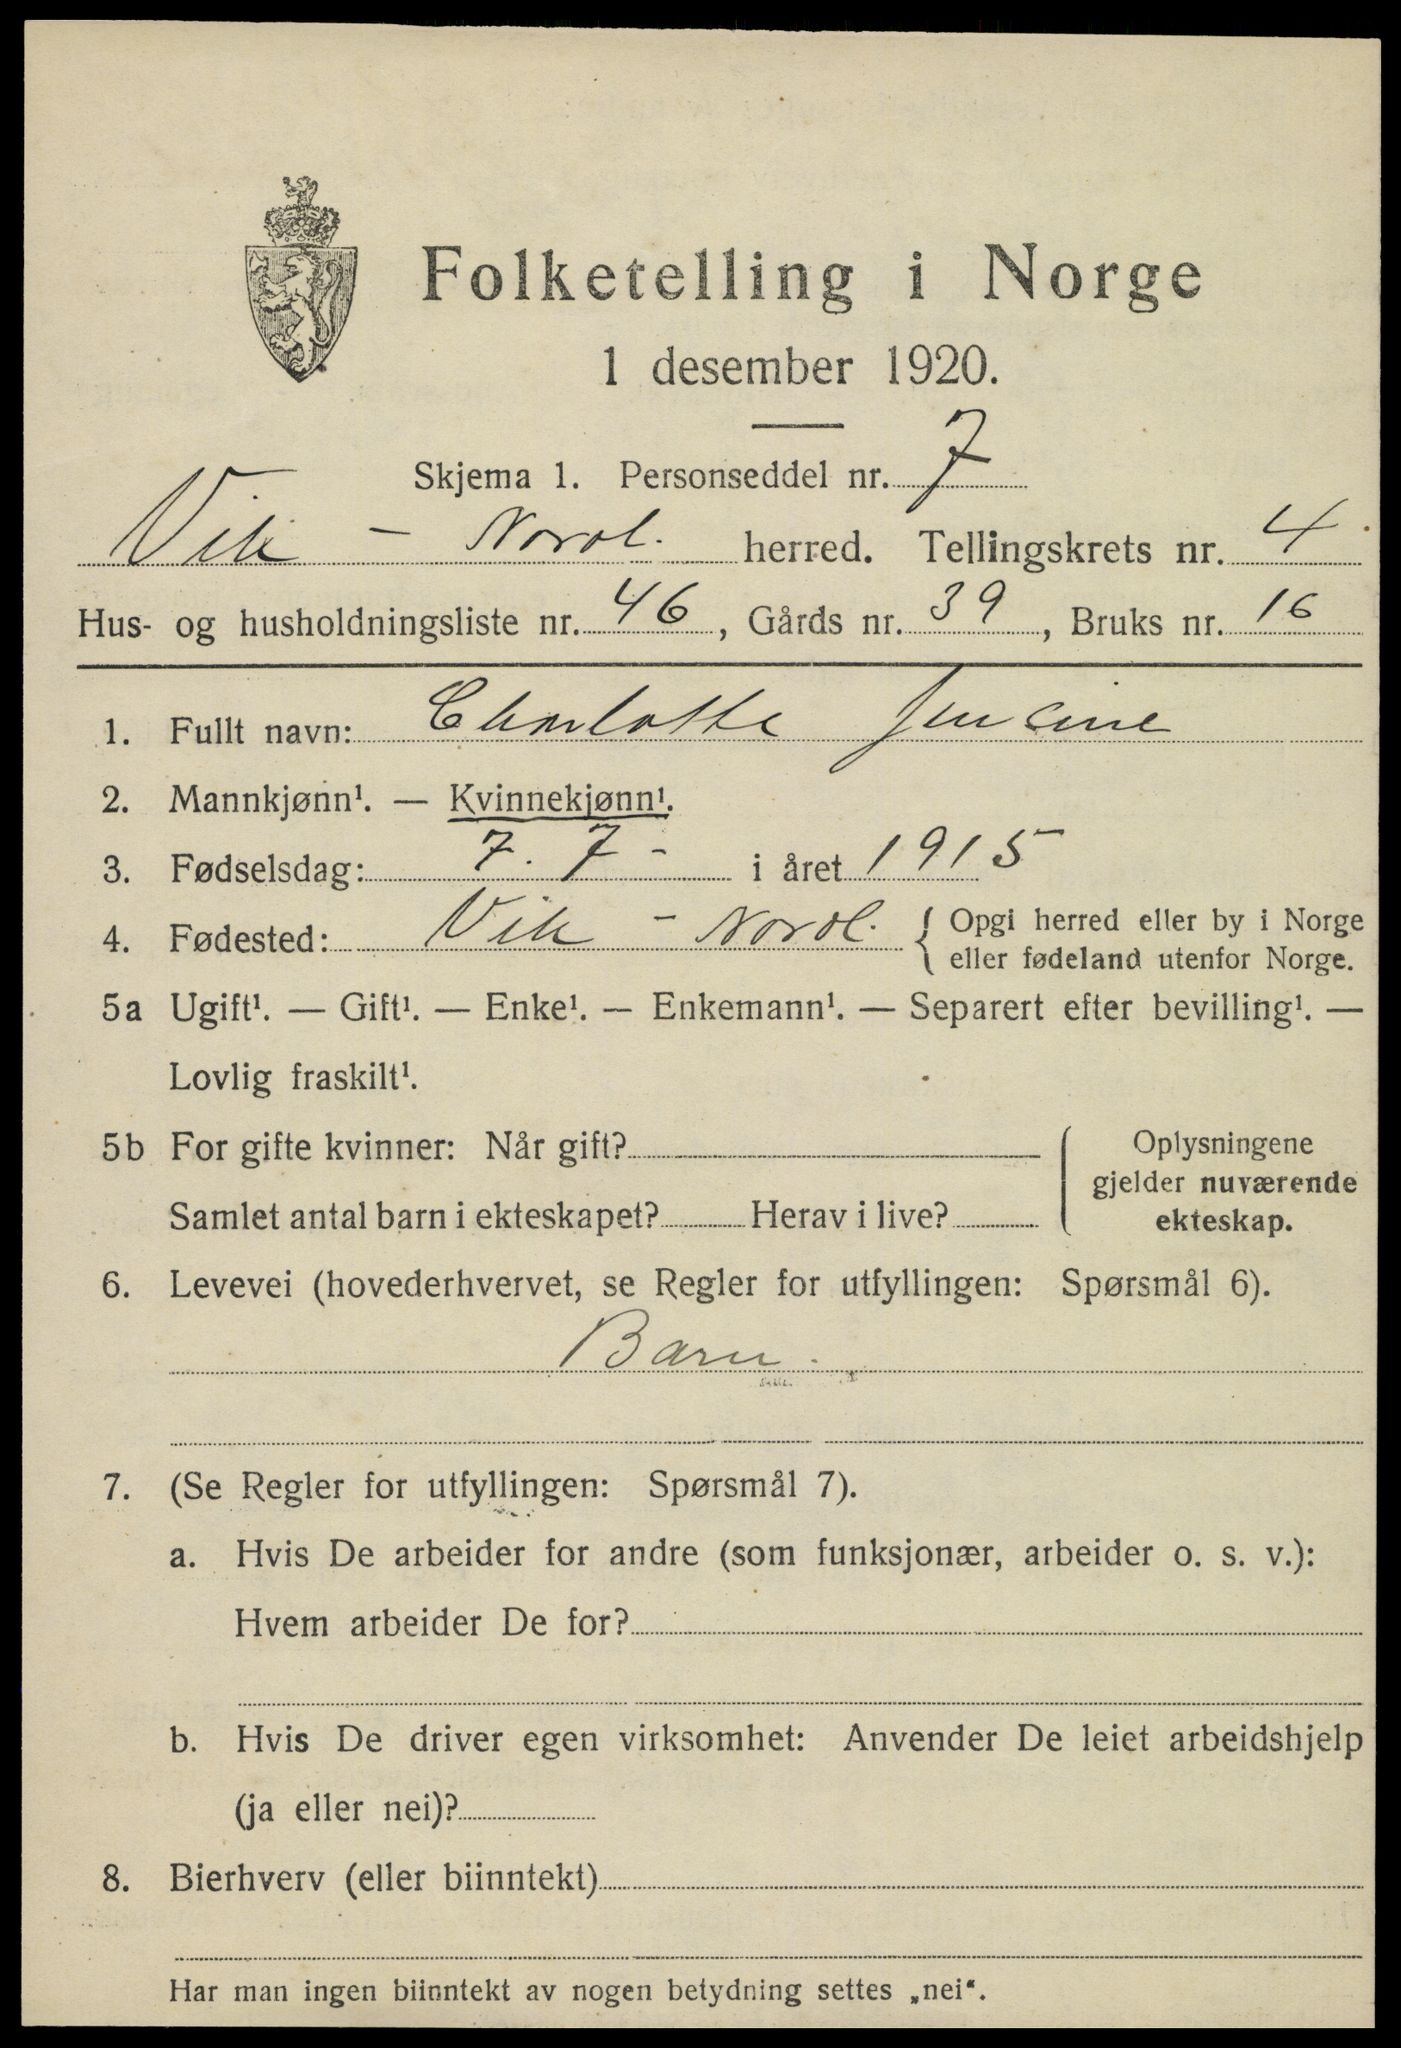 Folketelling i Norge
1 desember 1920.
Skjema 1. Personseddel nr. 7
Vik - Nordl. herred. Tellingskrets nr. 4
Hus- og husholdningsliste nr. 46, Gårds nr. 39, Bruks nr. 16
1. Fullt navn: Charlotte Jensine
2. Mannkjønn¹. — Kvinnekjønn¹.
3. Fødselsdag: 7. 7 - i året 1915
4. Fødested: Vik - Nordl. { Opgi herred eller by i Norge
eller fødeland utenfor Norge.
5a Ugift¹. — Gift¹. — Enke¹. — Enkemann¹. — Separert efter bevilling¹. —
Lovlig fraskilt¹.
5b For gifte kvinner: Når gift?
Samlet antal barn i ekteskapet? Herav i live?
Oplysningene
gjelder nuværende
ekteskap.
6. Levevei (hovederhvervet, se Regler for utfyllingen: Spørsmål 6).
Barn.
7. (Se Regler for utfyllingen: Spørsmål 7).
a. Hvis De arbeider for andre (som funksjonær, arbeider o. s. v.):
Hvem arbeider De for?
b. Hvis De driver egen virksomhet: Anvender De leiet arbeidshjelp
(ja eller nei)?
8. Bierhverv (eller biinntekt)
Har man ingen biinntekt av nogen betydning settes „nei“.